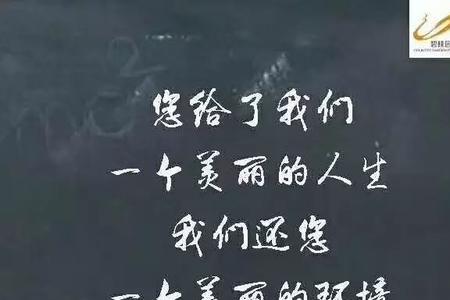 您给了我们
一个美丽的人生
我们还您
一个美丽的环境